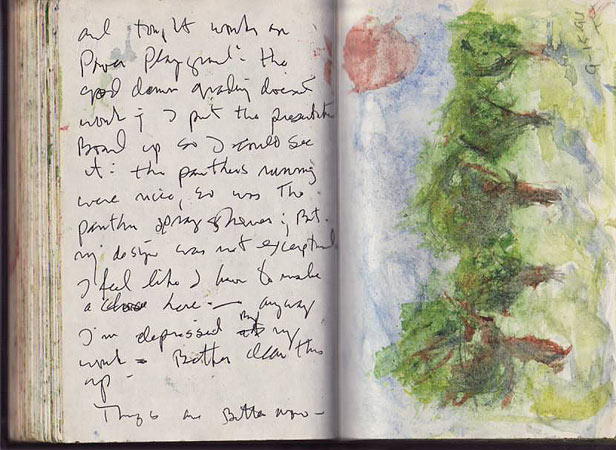 and tonight work on
Power Playground: the
god damn grading doesn't
work; I put the presentation
Board up so I could see
it: the panthers running
were nice, so was the
panther spray shower; But
my design was not exceptional
I feel like I have to make
a chose here — anyway
I'm depressed By my
work = Better clear this
up -
Things are Better now -